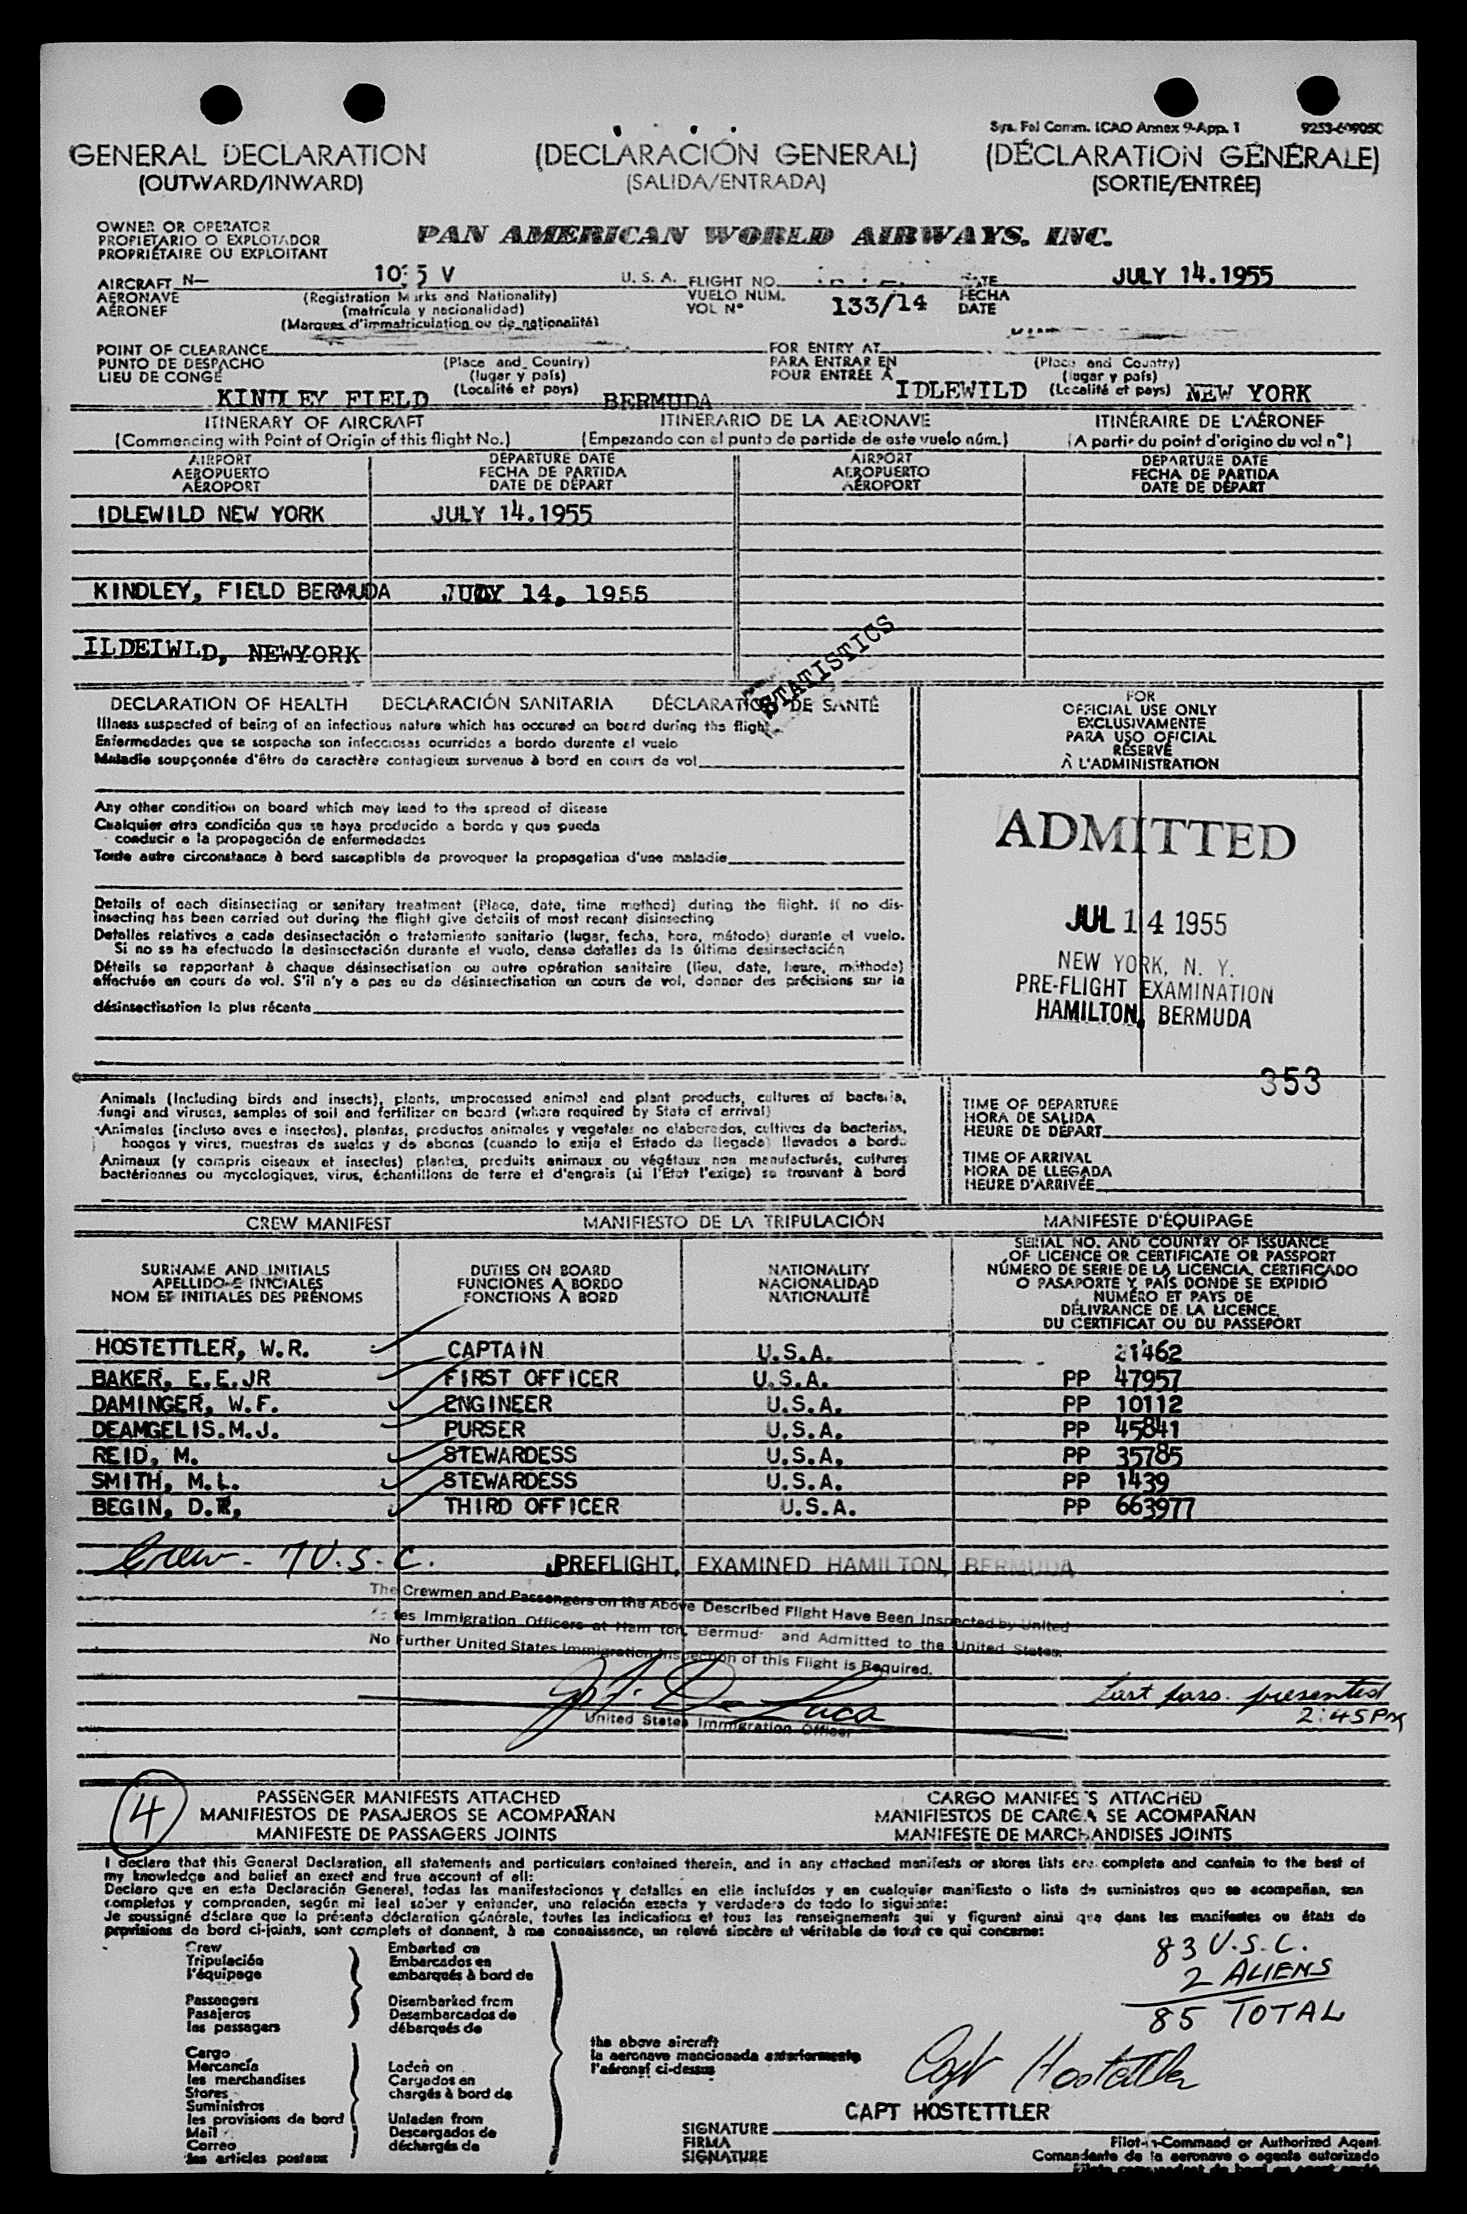 Sys. Fal Comm. ICAO Annex 9-App. 1
GENERAL DECLARATION (DECLARACIÓN GENERAL) (DÉCLARATION GÉNÉRALE)
(OUTWARD/INWARD) (SALIDA/ENTRADA) (SORTIE/ENTRÉE)
OWNER OR OPERATOR
PROPIETARIO O EXPLOTADOR
PROPRIÉTAIRE OU EXPLOITANT
PAN AMERICAN WORLD AIRWAYS, INC.
AIRCRAFT N— V U. S. A. FLIGHT NO. DATE JULY 14.1955
AERONAVE (Registration Marks and Nationality) VUELO NUM. 133/14 FECHA
AÉRONEF (matrícula y nacionalidad) VOL N° DATE
(Marques d'immatriculation ou de nationalité)
POINT OF CLEARANCE FOR ENTRY AT
PUNTO DE DESPACHO (Place and Country) PARA ENTRAR EN (Place and Country)
LIEU DE CONGÉ (lugar y país) POUR ENTRÉE À (lugar y país)
KINDLEY FIELD (Localité et pays) BERMUDA IDLEWILD (Localité et pays) NEW YORK
ITINERARY OF AIRCRAFT ITINERARIO DE LA AERONAVE ITINÉRAIRE DE L'AÉRONEF
(Commencing with Point of Origin of this flight No.) (Empezando con el punto de partida de este vuelo núm.) (A partir du point d'origine du vol n°)
AIRPORT DEPARTURE DATE AIRPORT DEPARTURE DATE
AEROPUERTO FECHA DE PARTIDA AEROPUERTO FECHA DE PARTIDA
AÉROPORT DATE DE DÉPART AÉROPORT DATE DE DÉPART
IDLEWILD NEW YORK JULY 14.1955
KINDLEY, FIELD BERMUDA JULY 14, 1955
ILDEIWLD, NEWYORK
STATISTICS
DECLARATION OF HEALTH DECLARACIÓN SANITARIA DÉCLARATION DE SANTÉ
Illness suspected of being of an infectious nature which has occured on board during the flight
Enfermedades que se sospecha son infecciosas ocurridas a bordo durante el vuelo
Maladie soupçonnée d'être de caractère contagieux survenue à bord en cours de vol
Any other condition on board which may lead to the spread of disease
Cualquier otra condición que se haya producido a bordo y que pueda
conducir a la propagación de enfermedades
Toute autre circonstance à bord susceptible de provoquer la propagation d'une maladie
Details of each disinsecting or sanitary treatment (Place, date, time method) during the flight. If no dis-
insecting has been carried out during the flight give details of most recent disinsecting
Detalles relativos a cada desinsectación o tratamiento sanitario (lugar, fecha, hora, método) durante el vuelo.
Si no se ha efectuado la desinsectación durante el vuelo, dense detalles de la última desinsectación
Détails se rapportant à chaque désinsectisation ou autre opération sanitaire (lieu, date, heure, méthode)
effectuée en cours de vol. S'il n'y a pas eu de désinsectisation en cours de vol, donner des précisions sur la
désinsectisation la plus récente
FOR
OFFICIAL USE ONLY
EXCLUSIVAMENTE
PARA USO OFICIAL
RÉSERVÉ
À L'ADMINISTRATION
ADMITTED
JUL 14 1955
NEW YORK, N. Y.
PRE-FLIGHT EXAMINATION
HAMILTON, BERMUDA
353
Animals (Including birds and insects), plants, unprocessed animal and plant products, cultures of bacteria,
fungi and viruses, samples of soil and fertilizer on board (where required by State of arrival)
Animales (incluso aves e insectos), plantas, productos animales y vegetales no elaborados, cultivos de bacterias,
hongos y virus, muestras de suelos y de abonos (cuando lo exija el Estado de llegada) llevados a bordo.
Animaux (y compris oiseaux et insectes) plantes, produits animaux ou végétaux non manufacturés, cultures
bactériennes ou mycologiques, virus, échantillons de terre et d'engrais (si l'Etat l'exige) se trouvant à bord
TIME OF DEPARTURE
HORA DE SALIDA
HEURE DE DÉPART
TIME OF ARRIVAL
HORA DE LLEGADA
HEURE D'ARRIVÉE
CREW MANIFEST MANIFIESTO DE LA TRIPULACIÓN MANIFESTE D'ÉQUIPAGE
SURNAME AND INITIALS
APELLIDO E INICIALES
NOM ET INITIALES DES PRÉNOMS
DUTIES ON BOARD
FUNCIONES A BORDO
FONCTIONS À BORD
NATIONALITY
NACIONALIDAD
NATIONALITÉ
SERIAL NO. AND COUNTRY OF ISSUANCE
OF LICENCE OR CERTIFICATE OR PASSPORT
NÚMERO DE SERIE DE LA LICENCIA, CERTIFICADO
O PASAPORTE Y PAÍS DONDE SE EXPIDIÓ
NUMÉRO ET PAYS DE
DÉLIVRANCE DE LA LICENCE,
DU CERTIFICAT OU DU PASSEPORT
HOSTETTLER, W.R. CAPTAIN U.S.A. 21462
BAKER, E.E.JR FIRST OFFICER U.S.A. PP 47957
DAMINGER, W.F. ENGINEER U.S.A. PP 10112
DEAMGELIS.M.J. PURSER U.S.A. PP 45841
REID, M. STEWARDESS U.S.A. PP 35785
SMITH, M.L. STEWARDESS U.S.A. PP 1439
BEGIN, D. THIRD OFFICER U.S.A. PP 663977
Crew - 7 U.S.C.
PREFLIGHT, EXAMINED HAMILTON, BERMUDA
The Crewmen and Passengers on the Above Described Flight Have Been Inspected by United
States Immigration Officers at Hamilton, Bermuda and Admitted to the United States.
No Further United States Immigration Inspection of this Flight is Required.
De Luca
United States Immigration Officer
Last pass. presented
2:45 PM
4
PASSENGER MANIFESTS ATTACHED CARGO MANIFESTS ATTACHED
MANIFIESTOS DE PASAJEROS SE ACOMPAÑAN MANIFIESTOS DE CARGA SE ACOMPAÑAN
MANIFESTE DE PASSAGERS JOINTS MANIFESTE DE MARCHANDISES JOINTS
I declare that this General Declaration, all statements and particulars contained therein, and in any attached manifests or stores lists are complete and contain to the best of
my knowledge and belief an exect and true account of all:
Declaro que en esta Declaración General, todas las manifestaciones y detalles en ella incluídos y en cualquier manifiesto o lista de suministros que se acompañan, son
completos y comprenden, según mi leal saber y entender, una relación exacta y verdadera de todo lo siguiente:
Je soussigné déclare que la présente déclaration générale, toutes les indications et tous les renseignements qui y figurent ainsi que dans les manifestes ou états de
provisions de bord ci-joints, sont complets et donnent, à ma connaissance, un relevé sincère et véritable de tout ce qui concerne:
Crew
Tripulación
l'équipage
Passengers
Pasajeros
les passagers
Cargo
Mercancía
les merchandises
Stores
Suministros
les provisions de bord
Mail
Correo
les articles postaux
Embarked on
Embarcados en
embarqués à bord de
Disembarked from
Desembarcados de
débarqués de
Laden on
Cargados en
chargés à bord de
Unladen from
Descargados de
déchargés de
the above aircraft
la aeronave mencionada anteriormente
l'aéronef ci-dessus
83 U.S.C.
2 ALIENS
85 TOTAL
Capt Hostettler
CAPT HOSTETTLER
SIGNATURE
FIRMA
SIGNATURE
Pilot-in-Command or Authorized Agent
Comandante de la aeronave o agente autorizado